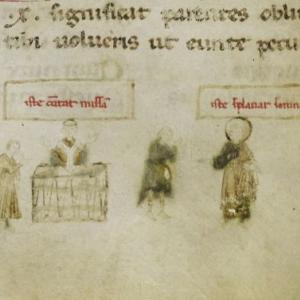 .x. significat parentes obli
tibi uolueris ut eunte pecu
iste cantat missa
iste